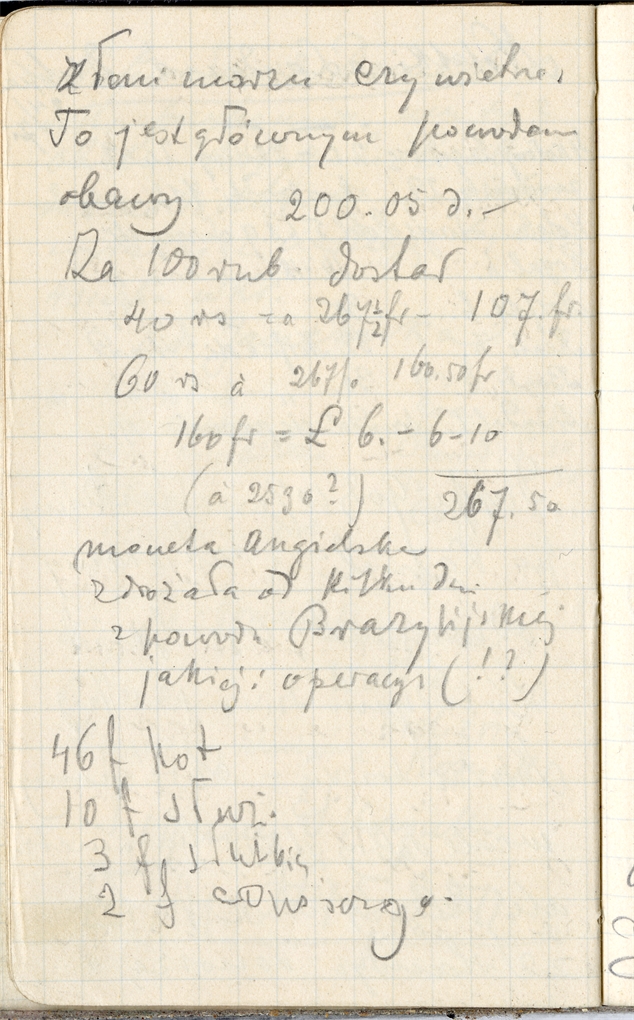 To jest głównym powodem
obawy 200.05 d.-
Za 100 rub. dostał
40 rs za 267½ fr - 107. fr.
60 rs à 267½ 160.50 fr
160 fr = £ 6. - 6 - 10
(à 2530?) 267.50
moneta Angielska
zdrożała od kilku dni
z powodu Brazylijskiej
jakiejś operacyi (!?)
46 f hot
10 f służ.
3 f służbie
2 f